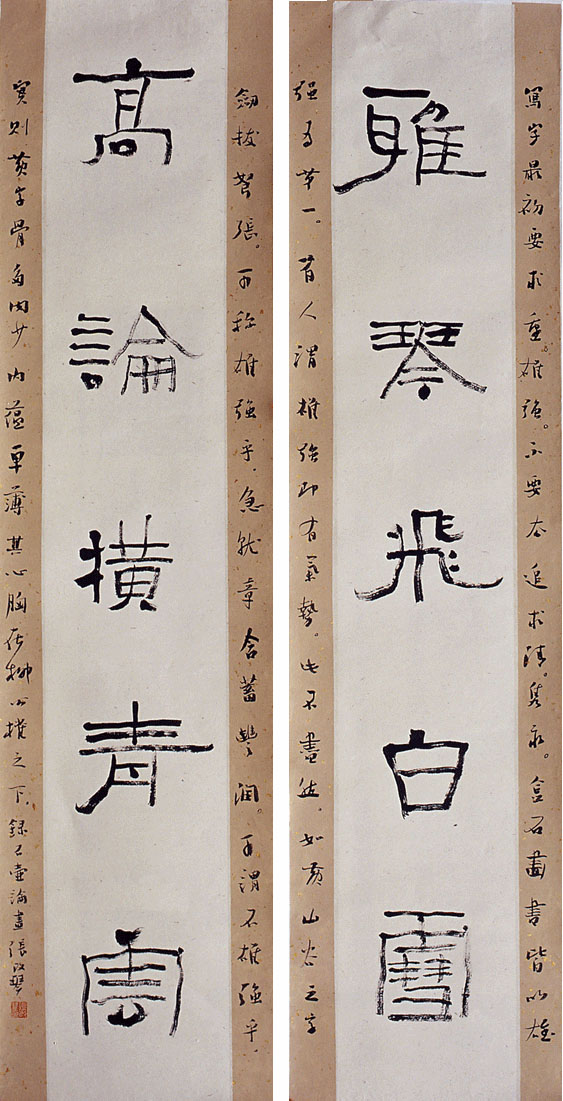 寫字最初要求重。雄强。不要太追求清。雋永。金石畫書皆以雄
雅琴飛白雪
强為第一。昔人謂雄强即有氣勢。此不盡然。如黃山谷之字
劍拔弩張。可称雄强乎。急就章含蓄豐潤。可謂不雄强乎。
高論橫青雲
實則黃字骨多肉少。內蘊單薄其心胸在柳公權之下。錄石壺論畫張